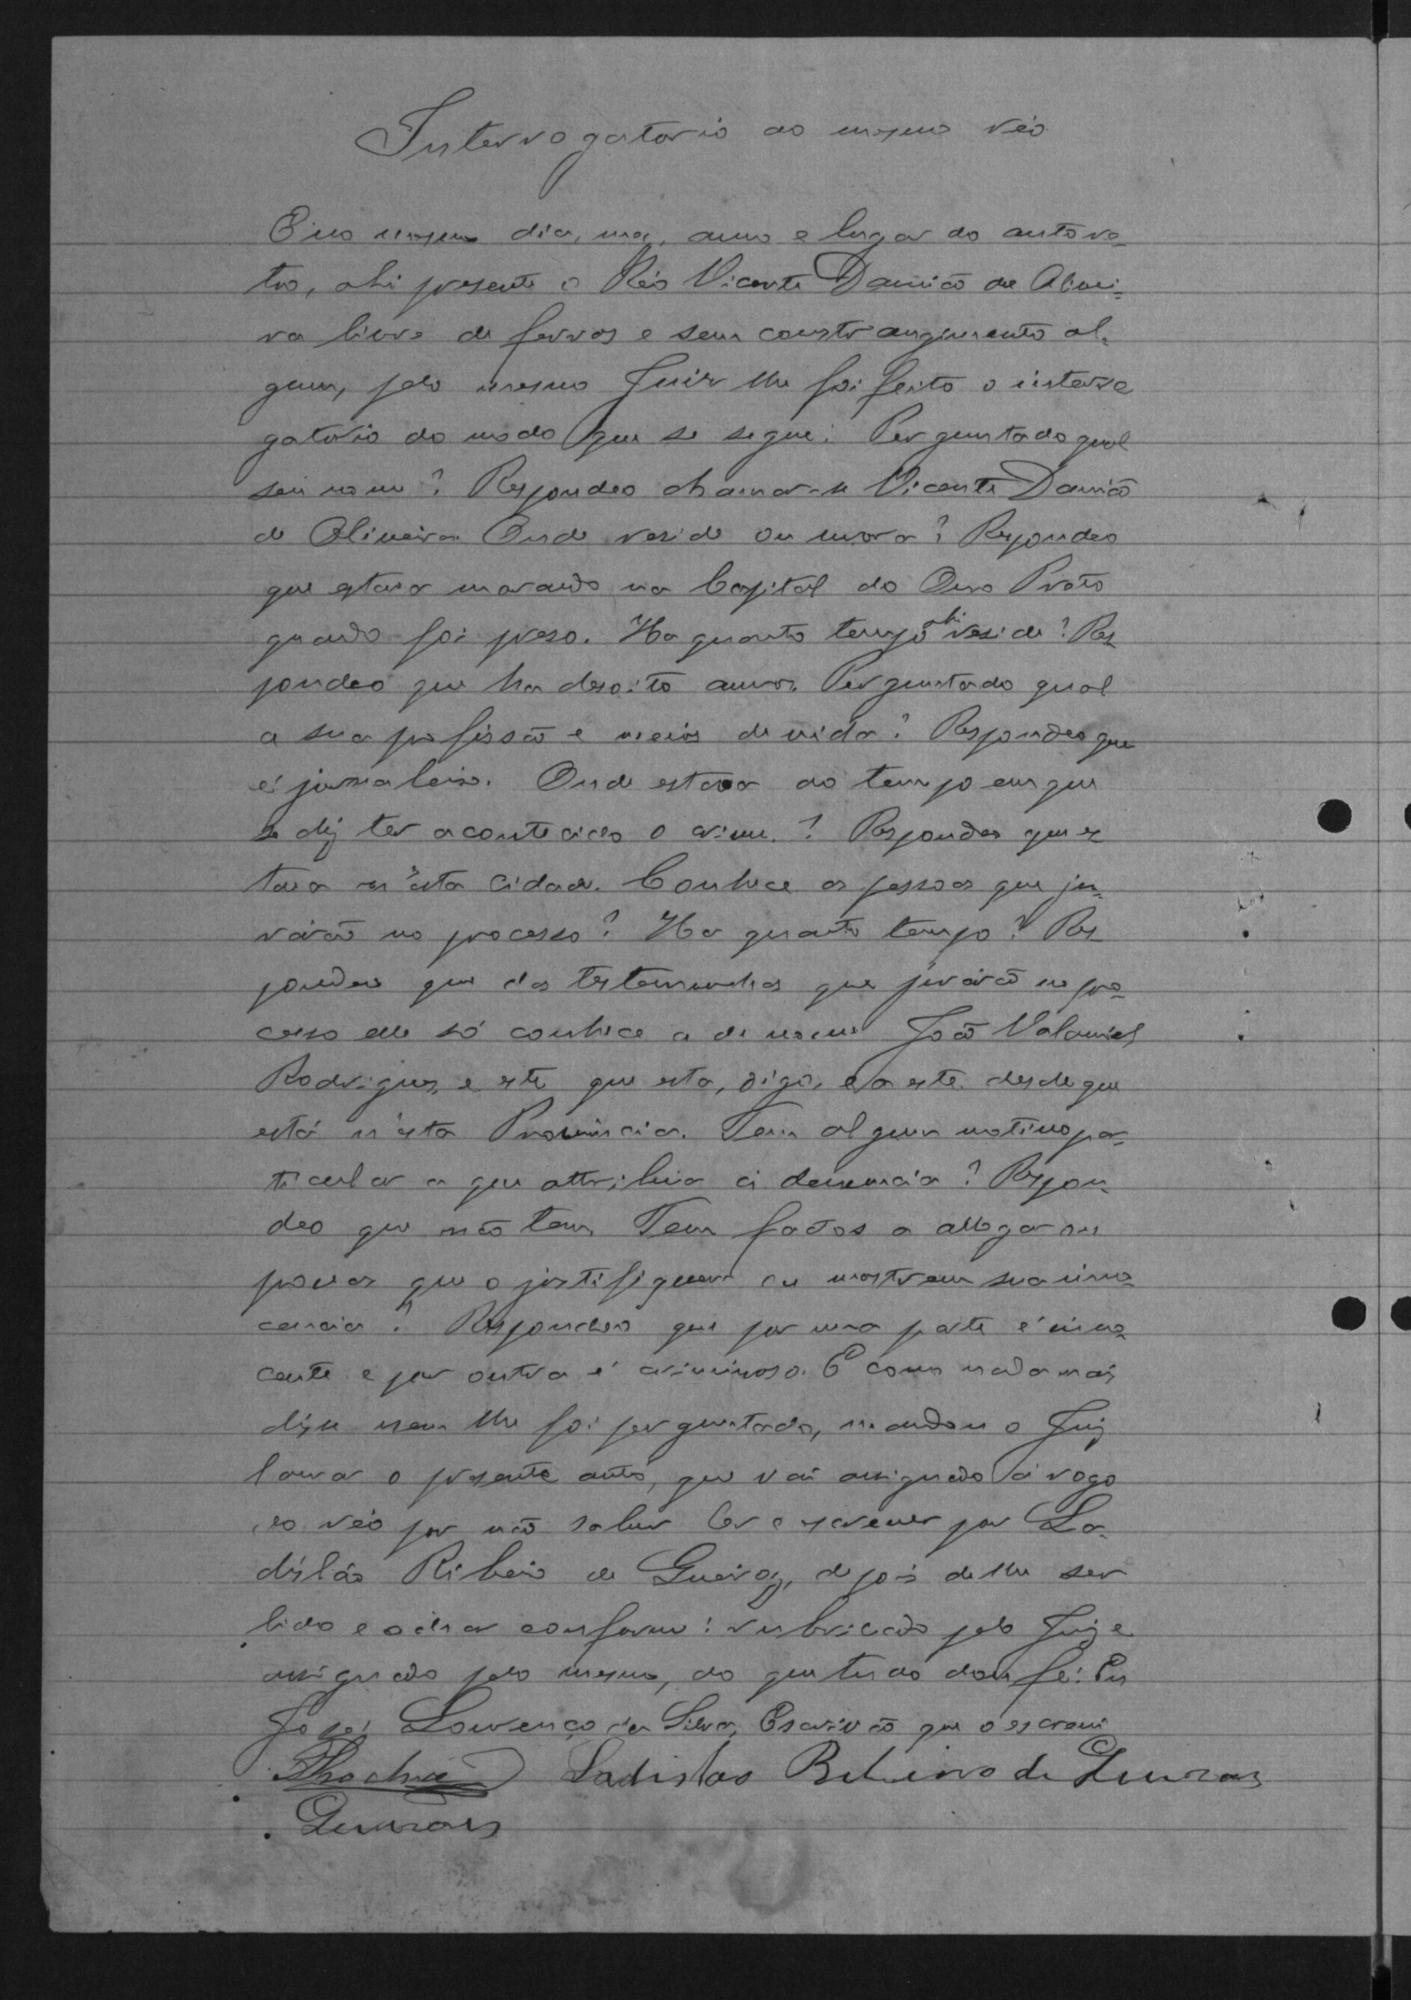 Interrogatorio ao mesmo réo
E no mesmo dia, mez, anno e lugar do auto re-
tro, ahi presente o Réo Vicente Damião de Olivei-
ra livre de ferros e sem constrangimento al-
gum, pelo mesmo Juiz lhe foi feito o interro
gatorio do modo que se segue: Perguntado qual
seu nome? Respondeo chamar-se Vicente Damião
de Oliveira. Onde reside ou mora? Respondeo
que estava morando na Capital do Ouro Preto
quando foi preso. Ha quanto tempo ahi reside? Res-
pondeo que ha desoito annos. Perguntado qual
a sua profissão e meios de vida? Respondeo que
é jornaleiro. Onde estava ao tempo em que
se diz ter acontecido o crime? Respondeo que es
tava n'esta Cidade. Conhece as pessoas que ju-
rárão no processo? Ha quanto tempo? Res-
pondeo que das testemunhas que jurárão no pro-
cesso elle só conhece a de nome João
Rodrigues, e este que esta, digo, e a este desde que
está n'esta Provincia. Tem algum motivo par-
ticular a que attribua a denuncia? Respon-
deo que não tem. Tem factos a allegar ou
provas que o justifiquem ou mostrem sua inno-
cencia? Respondeo que por uma parte é inno-
cente e por outra é criminoso. E como nada mais
disse nem lhe foi perguntado, mandou o Juiz
lavrar o presente auto, que vai assignado á rogo
do réo por não saber ler e escrever por La-
disláo Ribeiro de Queiroz, depois de lhe ser
lido e o achar conforme: rubricado pelo Juiz e
assignado pelo mesmo, do que tudo dou fé. Eu
José Lourenço da Silva, Escrivão que o escrevi
Rocha Ladislao Ribeiro de Queiroz